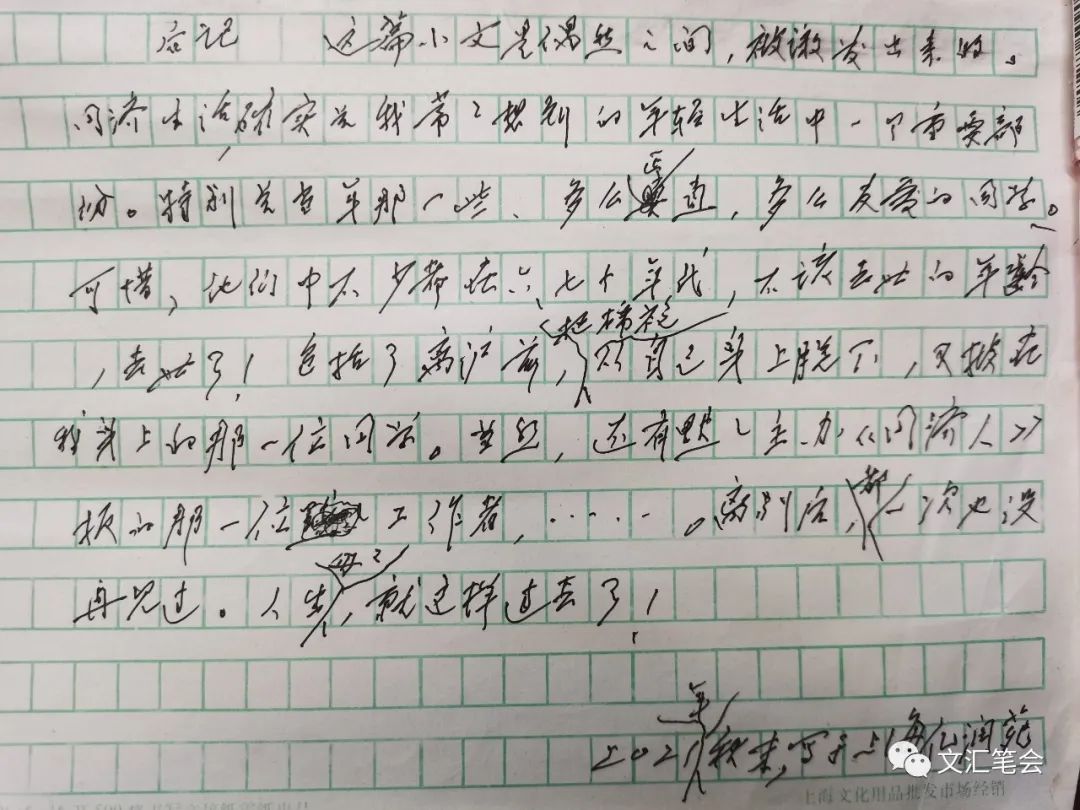 后记 这篇小文是偶然之间，被激发出来的。
同济生活，确实是我常常想到的年轻生活中一个重要部
份。特别是当年那一些、多么正直，多么友爱的同学。
可惜，他们中不少都在六、七十年代，不该去世的年龄
，去世了！包括了离沪前，把棉袄从自己身上脱下，又披在
我身上的那一位同学。当然，还有默默主办《同济人》
板的那一位工作者，……。离别后，都一次也没
再见过。人生，每每就这样过去了！
2021年秋末，写于上海仁润苑
文汇笔会
上海文化用品批发市场经销